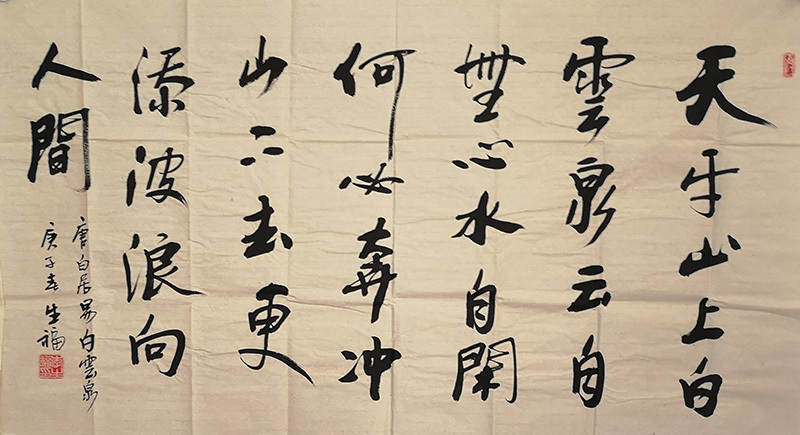 天平山上白
雲泉云自
無心水自閑
何必奔冲
山下去更
添波浪向
人間
唐白居易白雲泉
庚子春生福